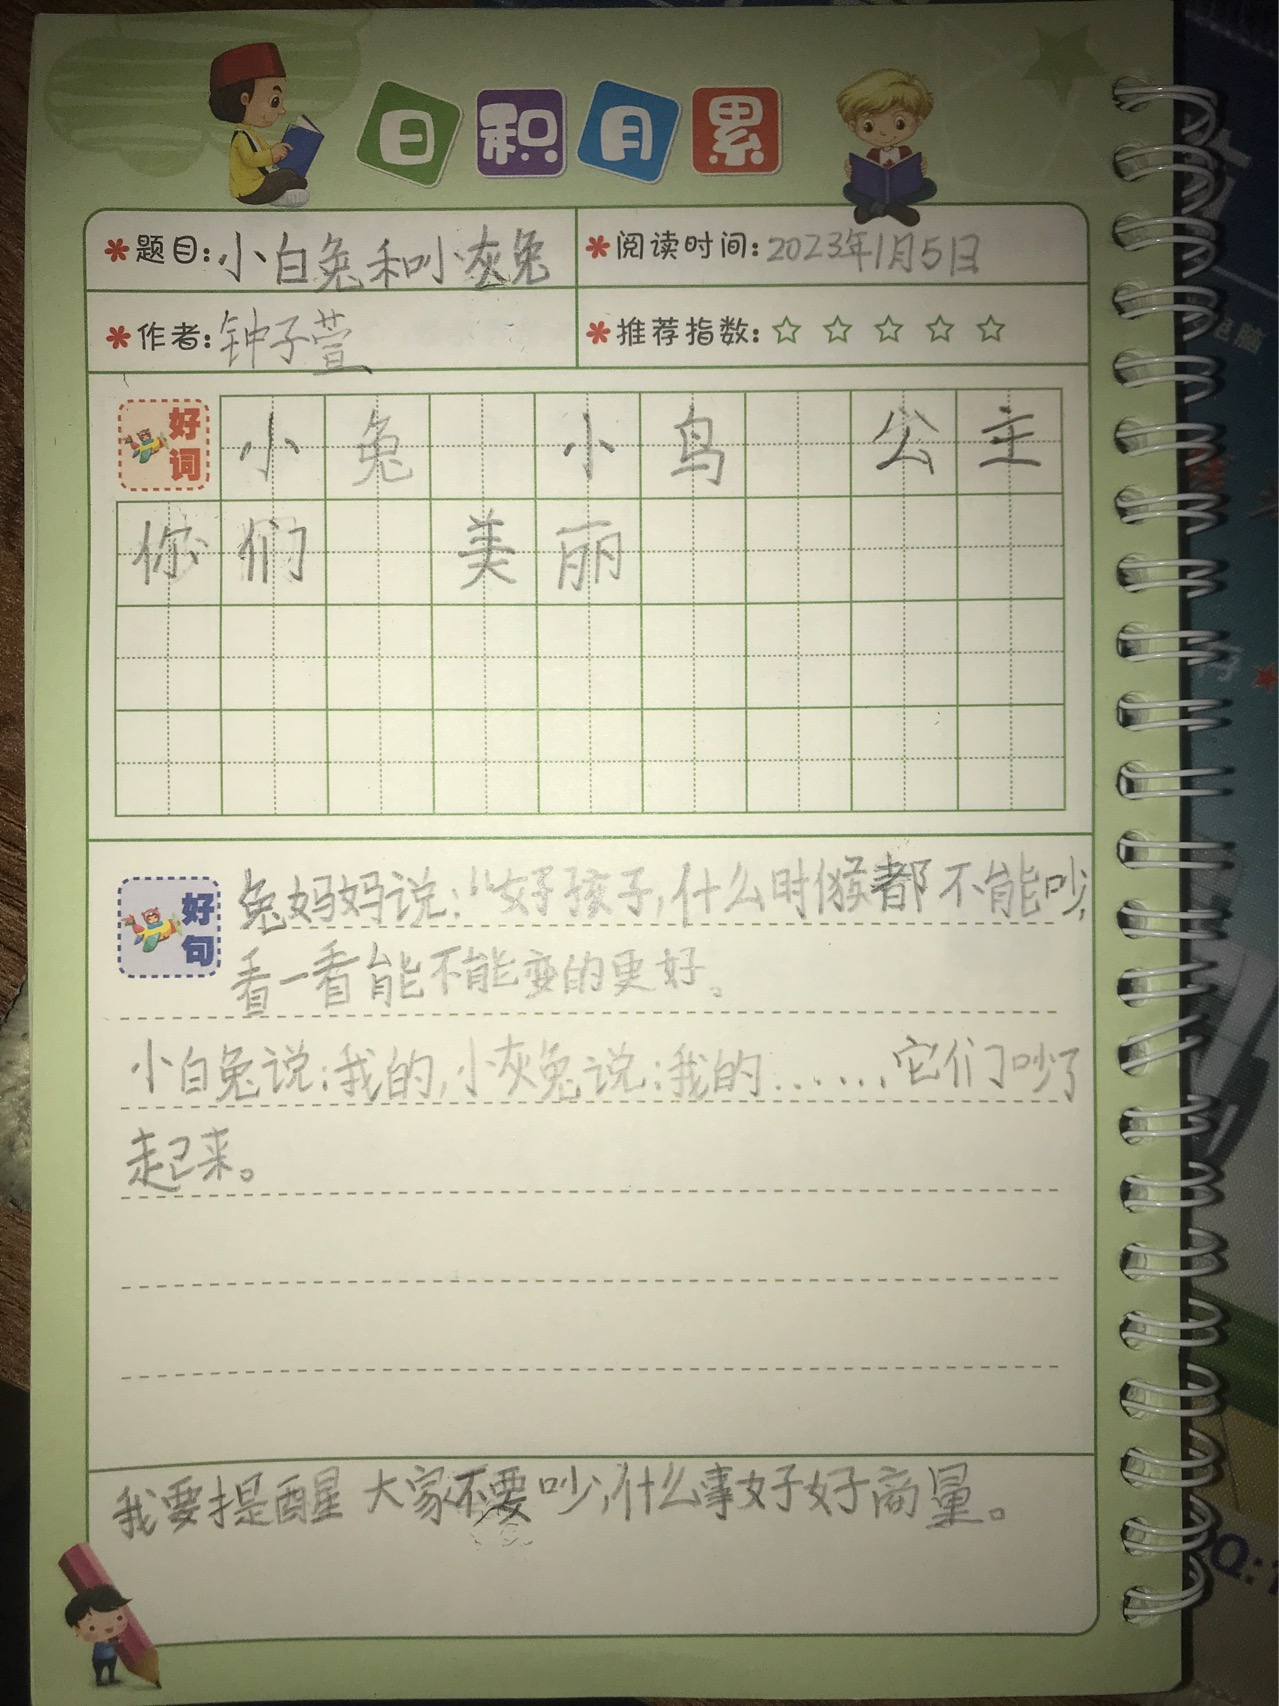 日积月累
题目:小白兔和小灰兔
阅读时间:2023年1月5日
作者:钟子萱
推荐指数:☆☆☆☆☆
好词
小兔 小鸟 公主
你们 美丽
好句
兔妈妈说:“好孩子,什么时候都不能吵,
看一看能不能变的更好。
小白兔说:我的,小灰兔说:我的......它们吵了
起来。
我要提醒大家不要吵,什么事好好商量。
Q:1